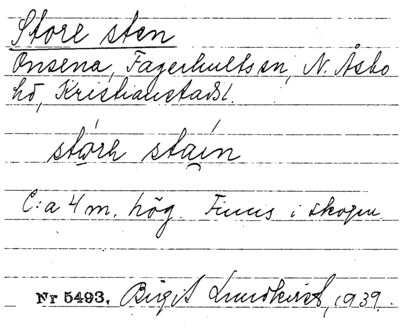 Store sten
Onsena, Fagerhults sn, N. Åsbo
hd, Kristianstads l.
störe staín
C:a 4 m. hög. Finns i skogen.
Nr 5493. Birgit Lundkvist, 1939.